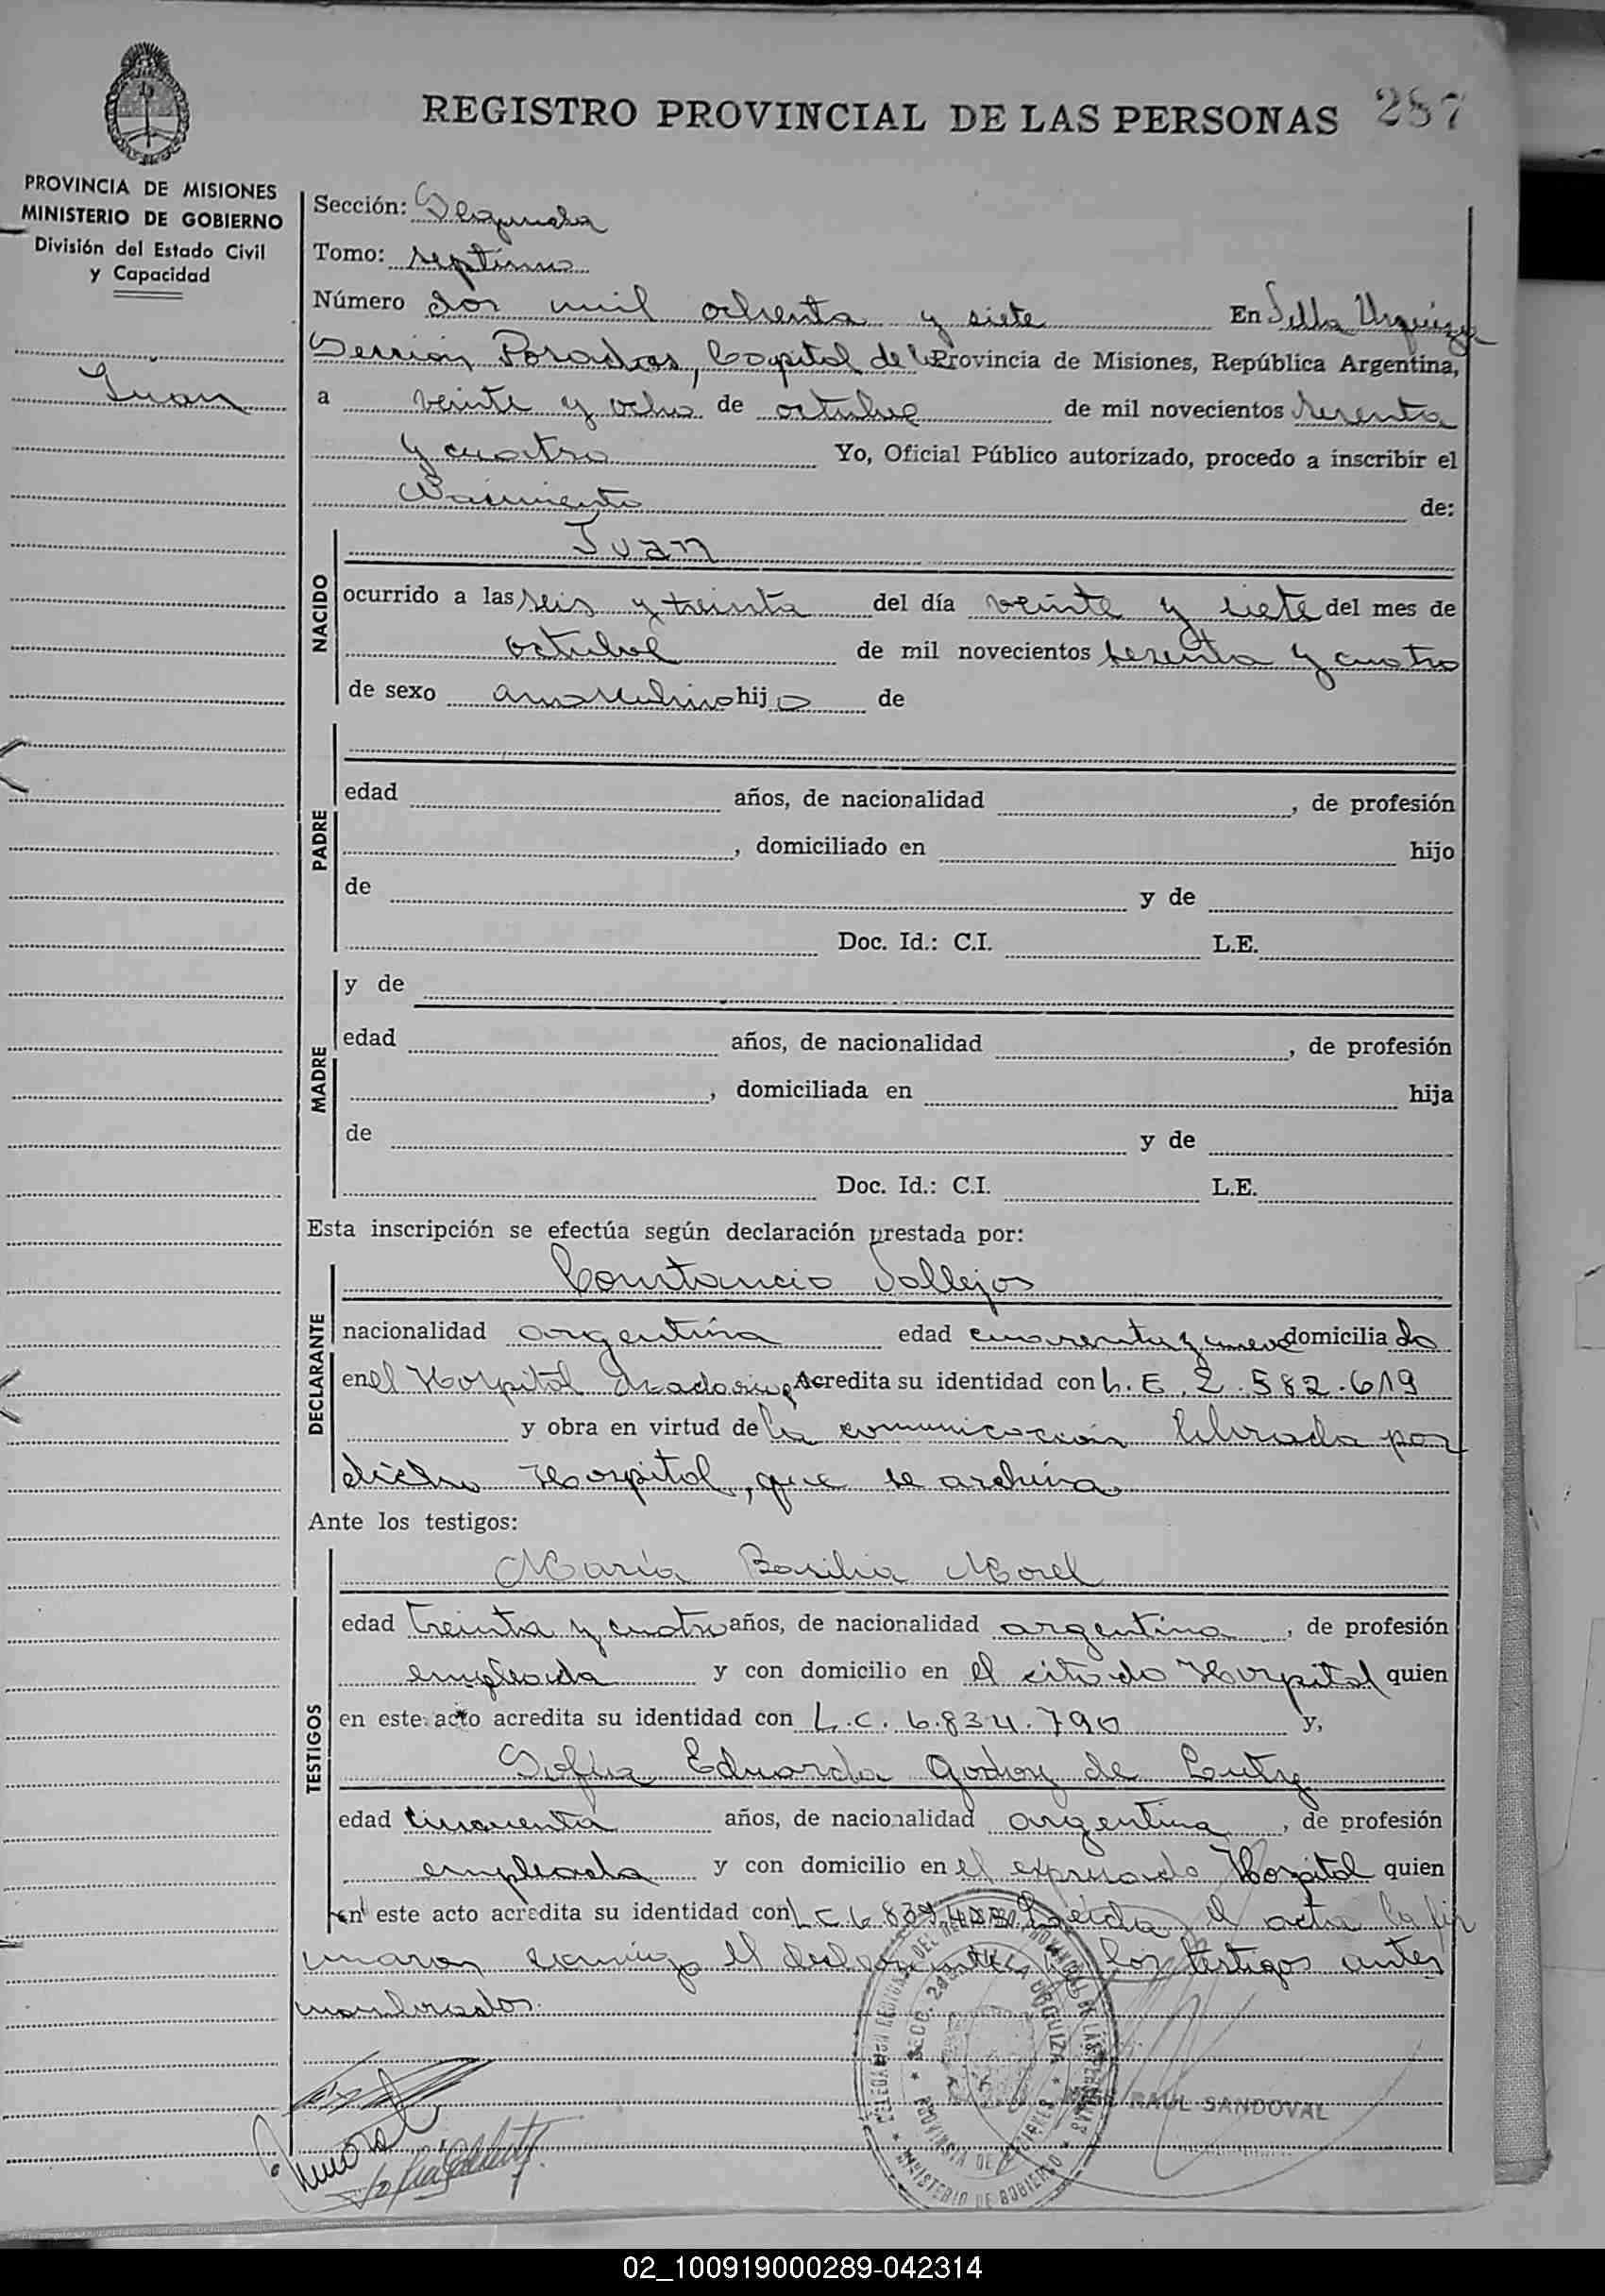 REGISTRO PROVINCIAL DE LAS PERSONAS 287
PROVINCIA DE MISIONES
MINISTERIO DE GOBIERNO
División del Estado Civil
y Capacidad
Juan
Sección: Segunda
Tomo: septimo
Número dos mil ochenta y siete En Villa Urquiza
Sección Posadas, Capital de la Provincia de Misiones, República Argentina,
a veinte y ocho de octubre de mil novecientos sesenta
y cuatro Yo, Oficial Público autorizado, procedo a inscribir el
Nacimiento de:
NACIDO
Juan
ocurrido a las seis y treinta del día veinte y siete del mes de
octubre de mil novecientos sesenta y cuatro
de sexo masculino hijo de
PADRE
edad años, de nacionalidad , de profesión
, domiciliado en hijo
de y de
Doc. Id.: C.I. L.E.
MADRE
y de
edad años, de nacionalidad , de profesión
, domiciliada en hija
de y de
Doc. Id.: C.I. L.E.
Esta inscripción se efectúa según declaración prestada por:
DECLARANTE
Constancio Vallejos
nacionalidad argentina edad cuarenta y nueve domiciliado
en el Hospital Madariaga Acredita su identidad con L.E. 2.582.619
y obra en virtud de la comunicación librada por
dicho Hospital, que se archiva
Ante los testigos:
TESTIGOS
María Basilia Morel
edad treinta y cuatro años, de nacionalidad argentina , de profesión
empleada y con domicilio en el citado Hospital quien
en este acto acredita su identidad con L.C. 6.834.790 y,
Sofia Eduarda Godoy de
edad cincuenta años, de nacionalidad argentina , de profesión
empleada y con domicilio en el expresado Hospital quien
en este acto acredita su identidad con L.C. 6.839. Leida el acta la fir
maron conmigo el declarante y los testigos antes
nombrados.
SECC. 2da. VILLA URQUIZA
PROVINCIA DE MISIONES
MINISTERIO DE GOBIERNO
RAUL SANDOVAL
02_100919000289-042314